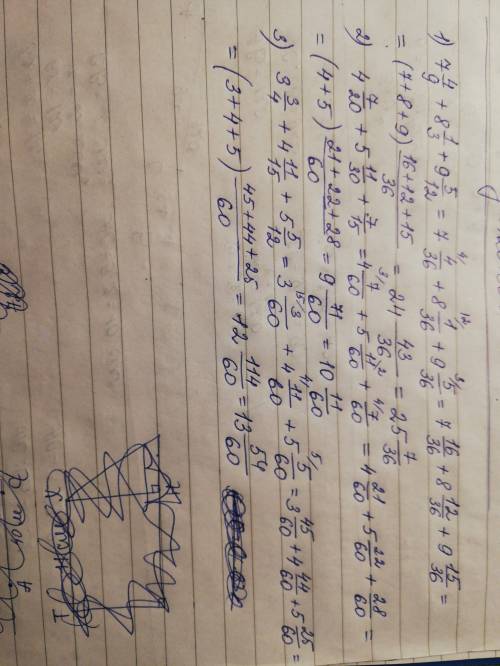 1) 7 4/9 + 8 1/3 + 9 5/12 = 7 4/36 + 8 1/36 + 9 5/36 = 7 16/36 + 8 12/36 + 9 15/36 =
= (7+8+9) 16+12+15/36 = 24 43/36 = 25 7/36
2) 4 7/20 + 5 11/30 + 7/15 = 4 7/60 + 5 11/60 + 7/60 = 4 21/60 + 5 22/60 + 28/60 =
= (4+5) 21+22+28/60 = 9 71/60 = 10 11/60
3) 3 3/4 + 4 11/15 + 5 5/12 = 3 3/60 + 4 11/60 + 5 5/60 = 3 45/60 + 4 44/60 + 5 25/60 =
= (3+4+5) 45+44+25/60 = 12 114/60 = 13 54/60